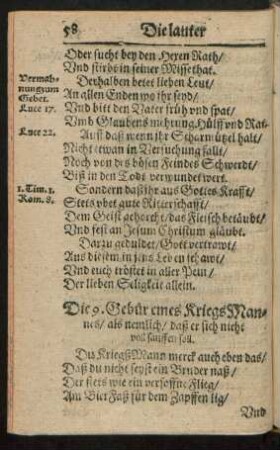 58 Die lauter
Oder sucht bey den Hexen Rath/
Vnd stirbt in seiner Missethat.
Vermah-
nung zum
Gebet.
Derhalben betet lieben Leut/
An allen Enden wo ihr seyd/
Luce 17.
Vnd bitt den Vater früh vnd spat/
Vmb Glaubens mehrung Hülff vnd Rat.
Luce 22.
Auff daß wenn ihr Scharmützel halt/
Nicht etwan in Versuchung fallt/
Noch von des bösen Feindes Schwerdt/
Biß in den Todt verwundet werd.
1. Tim. 1.
Rom. 8.
Sondern daß ihr aus Gottes Krafft/
Stets vbet gute Ritterschafft.
Dem Geist gehorcht/ das Fleisch betäubt/
Vnd fest an Jesum Christum gläubt.
Darzu geduldet/ Gott vertrowt/
Aus diesem in jens Leben schawt/
Vnd euch tröstet in aller Pein/
Der lieben Seligkeit allein.
Die 9. Gebür eines Kriegs Man-
nes/ als nemlich/ daß er sich nicht
voll sauffen soll.
Du KriegsMann merck auch eben das/
Daß du nicht seyst ein Bruder naß/
Der stets wie ein versoffne Flieg/
Am BierFaß für dem Zapffen lig/
Vnd